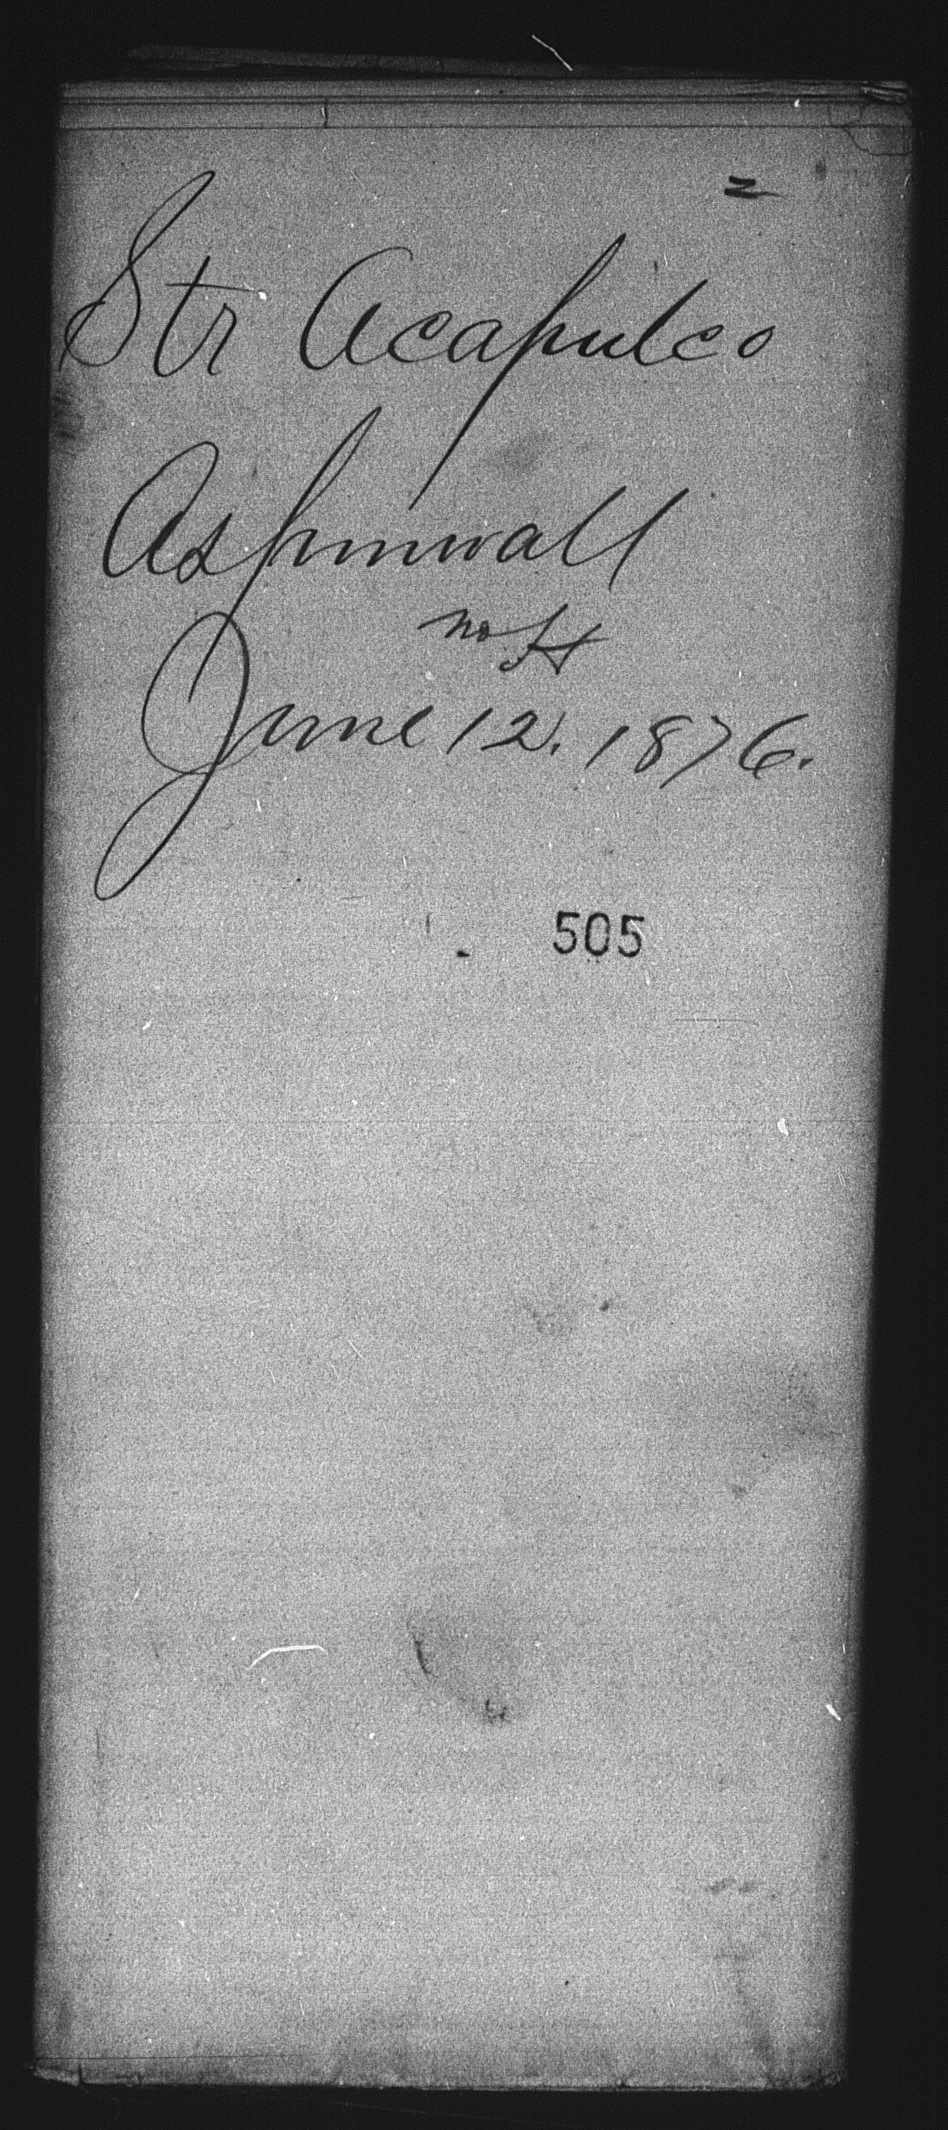 Str Acapulco
Aspinwall
June 12. 1876.
505